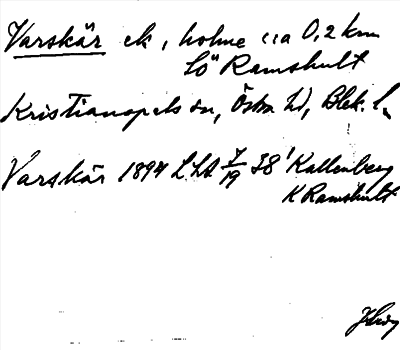 Varskär ek, holme ca 0,2 km
SÖ Ramshult
Kristianopels sn, Östra hd, Blek. l.
Varskär 1894 LSA 7/19 38' Kallenberg
K Ramshult